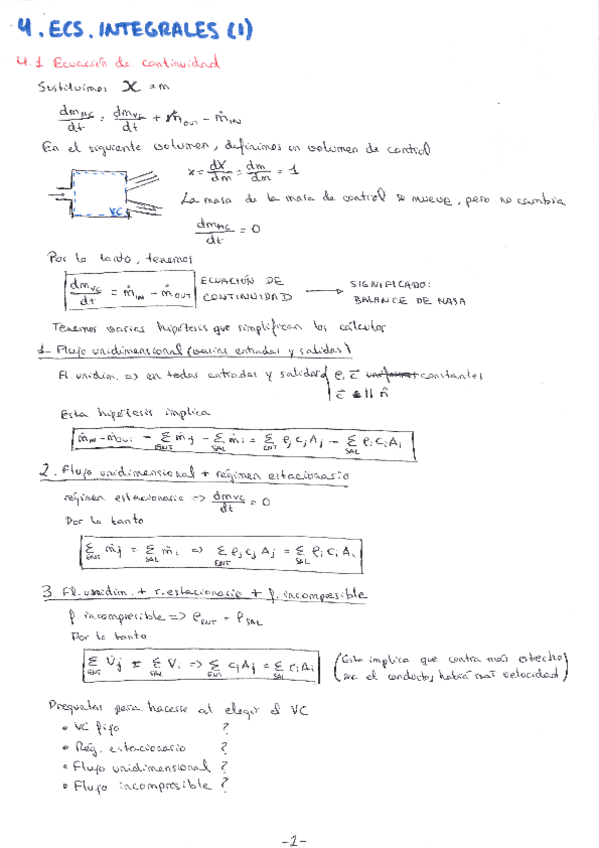 4. ECS. INTEGRALES (1)
4.1 Ecuación de continuidad
Sustituimos X = m
dm_MC/dt = dm_VC/dt + ṁ_OUT - ṁ_IN
En el siguiente volumen, definimos un volumen de control
x = dX/dm = dm/dm = 1
VC
La masa de la masa de control se mueve, pero no cambia
dm_MC/dt = 0
Por lo tanto, tenemos
dm_VC/dt = ṁ_IN - ṁ_OUT ECUACIÓN DE CONTINUIDAD → SIGNIFICADO: BALANCE DE MASA
Tenemos varias hipótesis que simplifican los cálculos
1. Flujo unidimensional (varias entradas y salidas)
Fl. unidim. => en todas entradas y salidas ρ, c̄ constantes
c̄ ∥ n̂
Esta hipótesis implica
ṁ_IN - ṁ_OUT = Σ_ENT ṁj - Σ_SAL ṁi = Σ_ENT ρj cj Aj - Σ_SAL ρi ci Ai
2. Flujo unidimensional + régimen estacionario
régimen estacionario => dm_VC/dt = 0
Por lo tanto
Σ_ENT ṁj = Σ_SAL ṁi => Σ_ENT ρj cj Aj = Σ_SAL ρi ci Ai
3. Fl. unidim. + r. estacionario + f. incompresible
f. incompresible => ρ_ENT = ρ_SAL
Por lo tanto
Σ_ENT V̇j = Σ_SAL V̇i => Σ_ENT cj Aj = Σ_SAL ci Ai (Esto implica que contra más estrecho sea el conducto, habrá más velocidad)
Preguntas para hacerse al elegir el VC
• VC fijo ?
• Rég. estacionario ?
• Flujo unidimensional ?
• Flujo incompresible ?